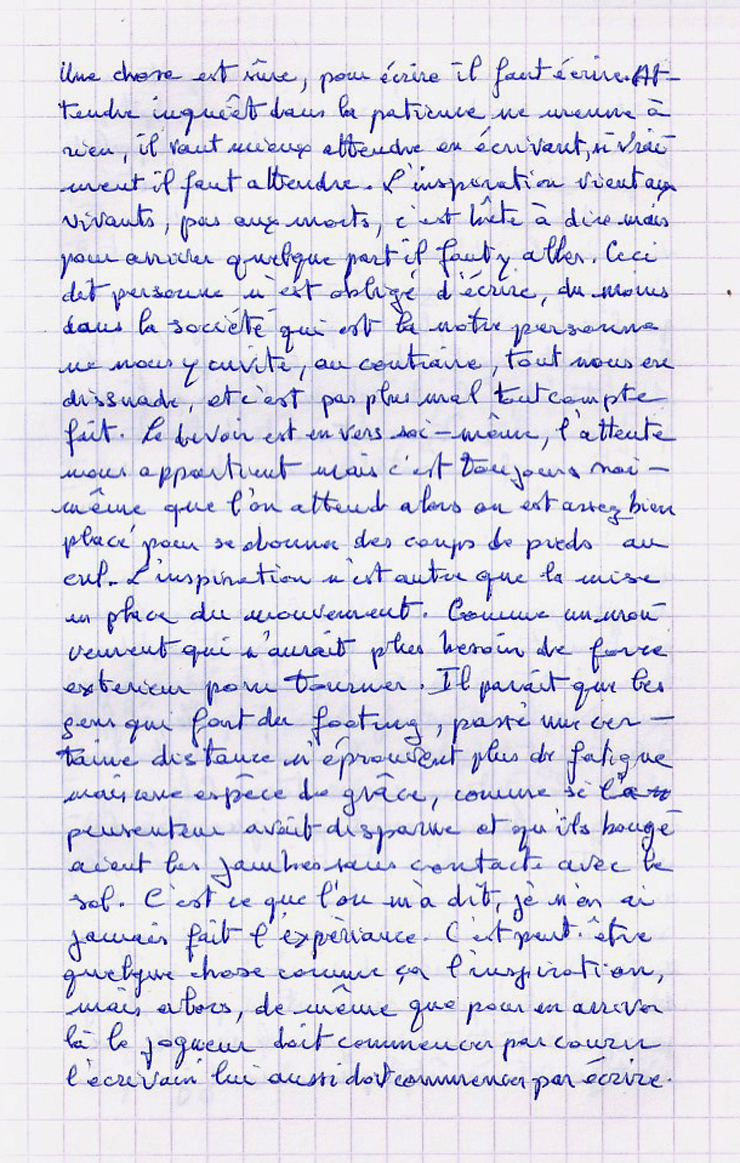 Une chose est sûre, pour écrire il faut écrire. At-
tendre inquêt dans la patience ne menne à
rien, il vaut mieux attendre en écrivant, si vrai
ment il faut attendre. L'inspiration vient aux
vivants, pas aux morts, c'est bête à dire mais
pour arriver quelque part il faut y aller. Ceci
dit personne n'est obligé d'écrire, du moins
dans la société qui est la notre personne
ne nous y invite, au contraire, tout nous en
dissuade, et c'est pas plus mal tout compte
fait. Le devoir est envers soi-même, l'attente
nous appartient mais c'est toujours soi-
même que l'on attend alors on est assez bien
placé pour se donner des coups de pieds au
cul. L'inspiration n'est autre que la mise
en place du mouvement. Comme un mou
vement qui n'aurait plus besoin de force
exterieur pour tourner. Il parait que les
gens qui font du footing, passé une cer-
taine distance n'éprouvent plus de fatigue
mais une espèce de grâce, comme si la
pensenteur avait disparue et qu'ils bougé
aient les jambes sans contacte avec le
sol. C'est ce que l'on m'a dit, je n'en ai
jamais fait l'expèriance. C'est peut-être
quelque chose comme ça l'inspiration,
mais alors, de même que pour en arriver
là le joggueur doit commencer par courir
l'écrivain lui aussi doit commencer par écrire.